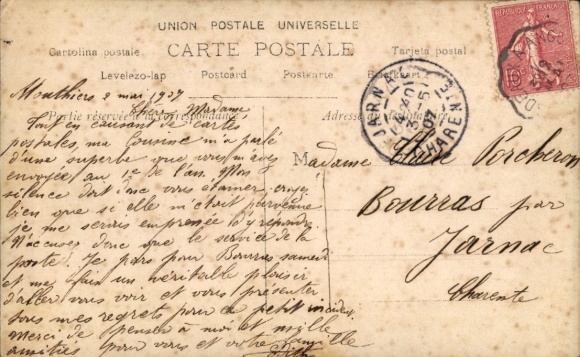 UNION POSTALE UNIVERSELLE
CARTE POSTALE
Cartolina postale
Tarjeta postal
Levelezo-lap Postcard Postkarte
Partie réservée à la correspondance
Adresse
RÉPUBLIQUE FRANÇAISE
10
JARNAC
3 - 5
07
CHARENTE
Mouthiers 2 mai 1907
Chère Madame,
Tout en causant de cartes
postales, ma cousine m'a parlé
d'une superbe que vous m'avez
envoyée au 1er de l'an. Mon
silence doit donc vous étonner, croyez
bien que si elle m'était parvenue
je me serais empressée d'y répondre
N'accusez donc que le service de la
poste! Je pars pour Bourras samedi
et me fais un véritable plaisir
d'aller vous voir et vous présenter
tous mes regrets pour ce petit incident
Merci de penser à moi et mille
amitiés pour vous et votre famille
Madame Porcheron
Bourras par
Jarnac
Charente